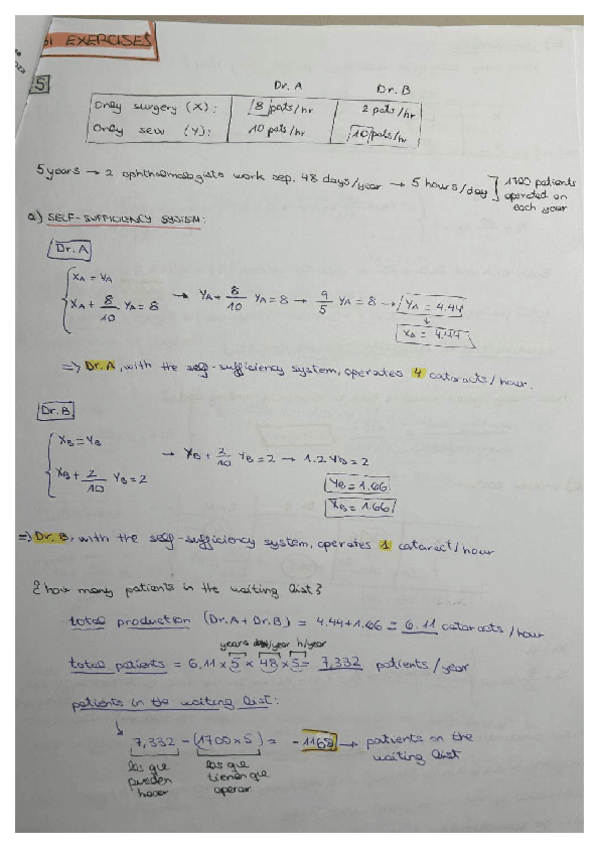 EXERCISES
5
Dr. A Dr. B
Only surgery (X): 8 pats/hr 2 pats/hr
Only sew (Y): 10 pats/hr 10 pats/hr
5 years → 2 ophthalmologists work sep. 48 days/year → 5 hours/day ] 1700 patients
operated on
each year
a) SELF-SUFFICIENCY SYSTEM:
Dr. A
XA = YA
XA + 8/10 YA = 8 → YA + 8/10 YA = 8 → 9/5 YA = 8 → YA = 4.44
XA = 4.44
=> Dr. A, with the self-sufficiency system, operates 4 cataracts/hour.
Dr. B
XB = YB
XB + 2/10 YB = 2 → YB + 2/10 YB = 2 → 1.2 YB = 2
YB = 1.66
XB = 1.66
=> Dr. B, with the self-sufficiency system, operates 1 cataract/hour
¿how many patients in the waiting list?
total production (Dr. A + Dr. B) = 4.44 + 1.66 = 6.11 cataracts/hour
years /year h/year
total patients = 6.11 x 5 x 48 x 5 = 7,332 patients/year
patients in the waiting list:
7,332 - (1700 x 5) = -1168 → patients on the
waiting list
los que
pueden
hacer
los que
tienen que
operar